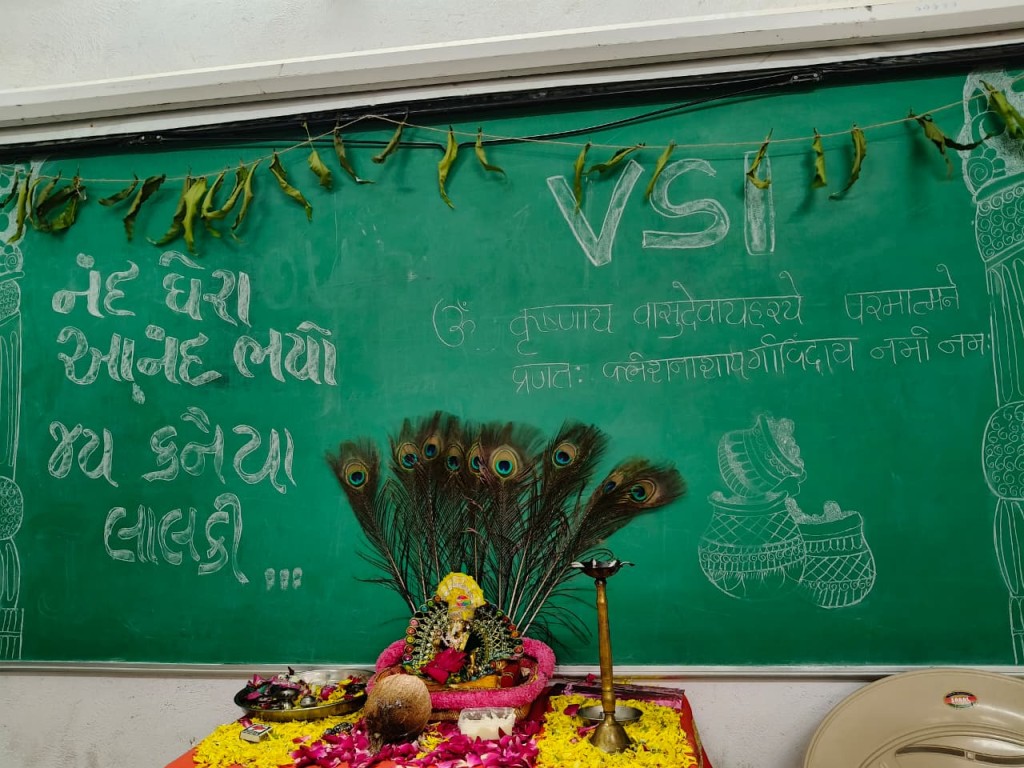 VSI
નંદ ઘેરા
આનંદ ભયો
જય કનૈયા
લાલકી ...
ॐ कृष्णाय वासुदेवायहरये परमात्मने
प्रणतः क्लेशनाशाय गोविंदाय नमो नमः